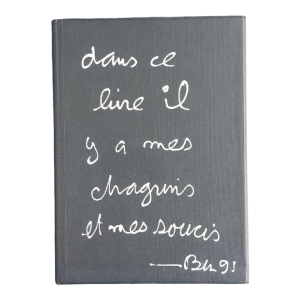 dans ce
livre il
y a mes
chagrins
et mes soucis
—Ben 91